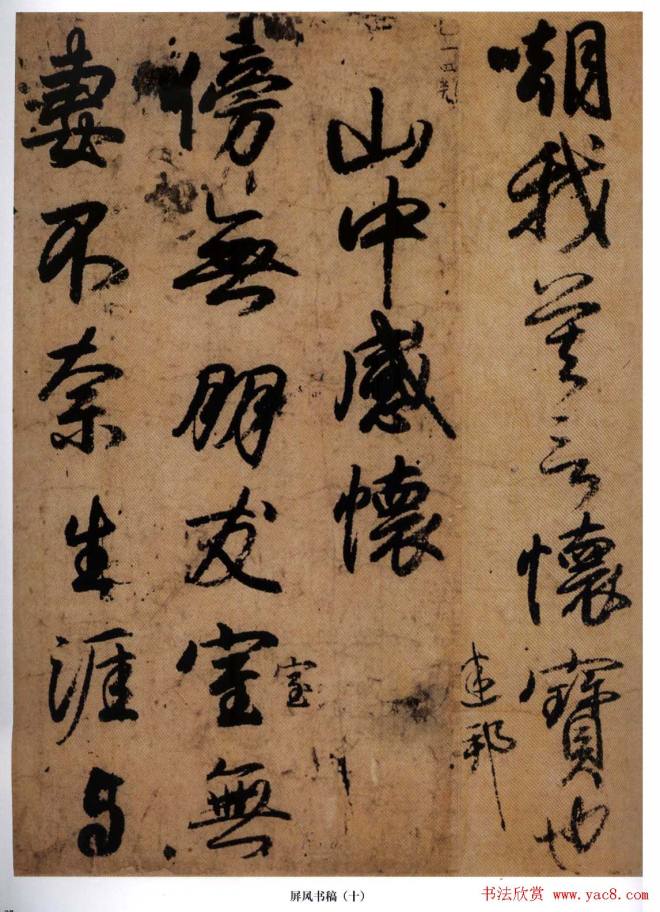 嘲我莫言懷寶也
迷邦
山中感懷
傍無朋友室無
室
妻不奈生涯与
屏风书稿（十）
书法欣赏 www.yac8.com